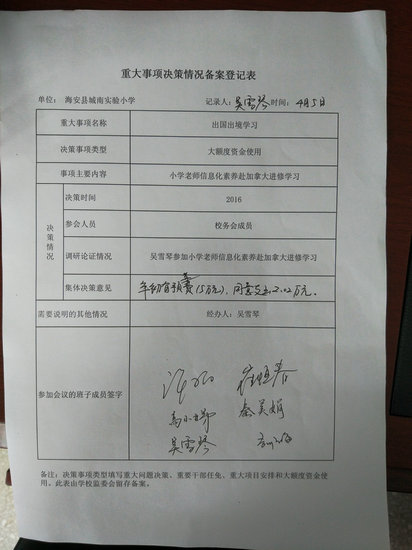 重大事项决策情况备案登记表
单位： 海安县城南实验小学 记录人：吴雪琴 时间：4月5日
重大事项名称 出国出境学习
决策事项类型 大额度资金使用
事项主要内容 小学老师信息化素养赴加拿大进修学习
决策情况
决策时间 2016
参会人员 校务会成员
调研论证情况 吴雪琴参加小学老师信息化素养赴加拿大进修学习
集体决策意见 年初有预算(5万元)，同意支出2.02万元。
需要说明的其他情况 经办人：吴雪琴
参加会议的班子成员签字
秦美娟
吴雪琴
备注：决策事项类型填写重大问题决策、重要干部任免、重大项目安排和大额度资金使
用。此表由学校监委会留存备案。